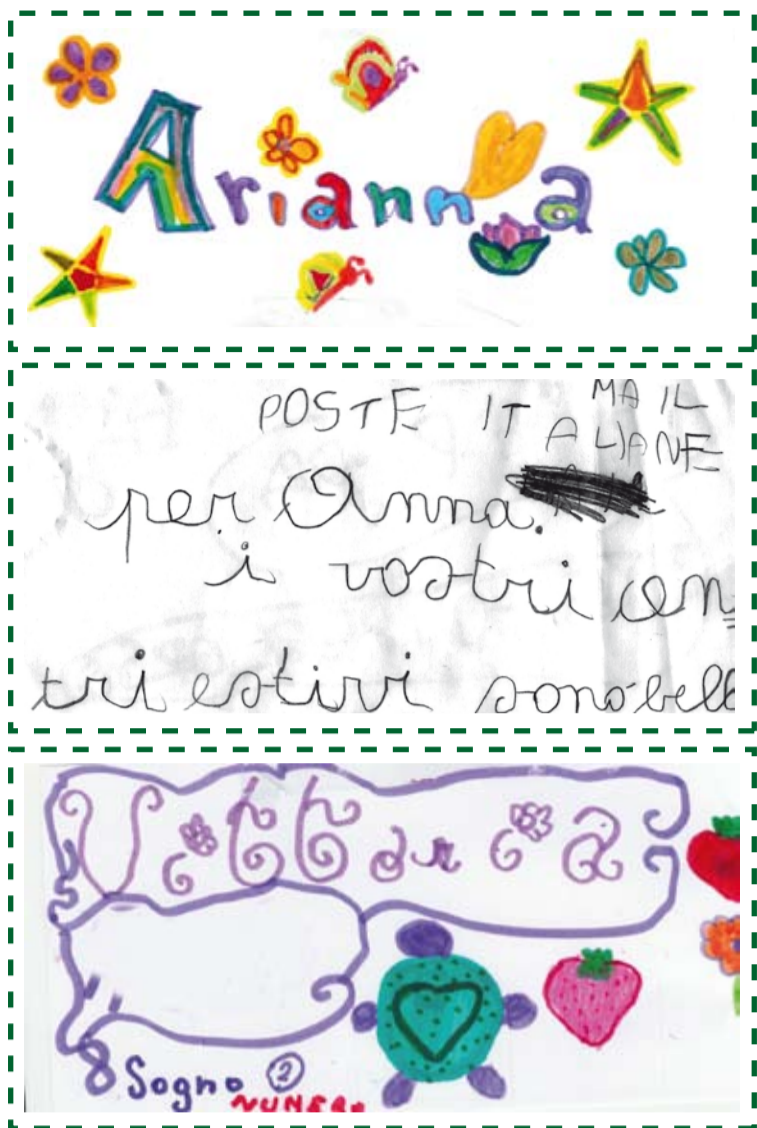 Arianna
MAIL
POSTE ITALIANE
per Anna.
i vostri cen
tri estivi sono bell
Vittoria
Sogno 2
NUMERO